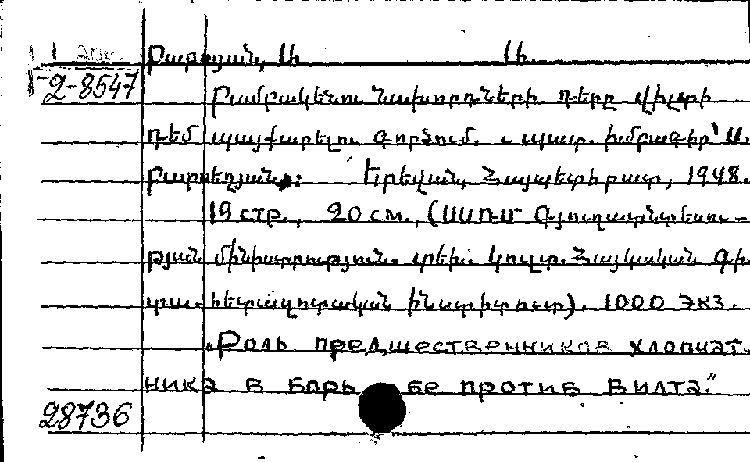 2-8547
Բամբակենու նախորդների դերը վիլտի
դեմ պայքարելու գործում. պատ. խմբագիր՝ Ա.
Երևան, Հայպետհրատ, 1948.
19 стр., 20 см., (ՍՍՌՄ Գյուղատնտեսու-
թյան մինիստրություն. տեխ. կուլտ. Հայկական գի-
տա-հետազոտական ինստիտուտ). 1000 экз.
„Роль предшественников хлопчат-
ника в борьбе против вилта."
28736